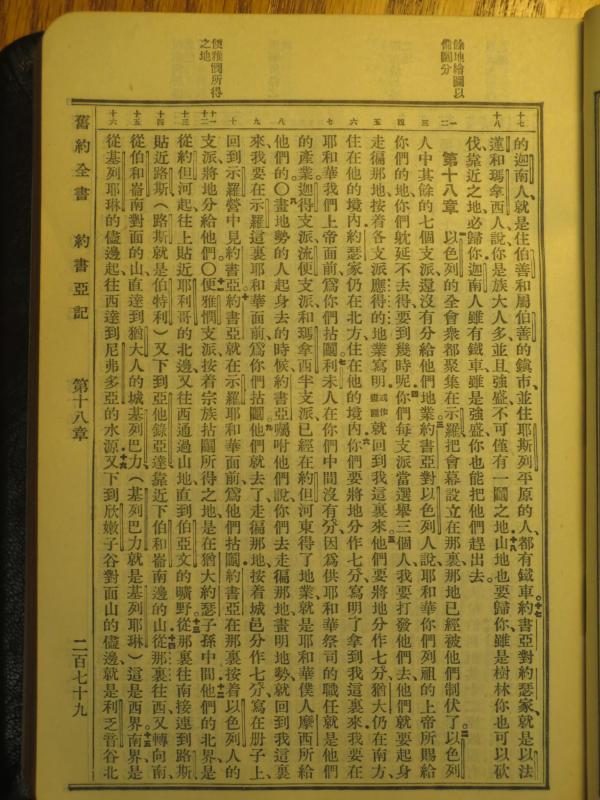 餘地繪圖以
備鬮分
便雅憫所得
之地
十七 的迦南人、就是住伯善和屬伯善的鎮市、並住耶斯列平原的人、都有鐵車、十七約書亞對約瑟家、就是以法
十八 蓮和瑪拿西人、說你是族大人多、並且強盛、不可僅有一鬮之地、十八山地也要歸你、雖是樹林、你也可以砍
伐、靠近之地必歸你、迦南人雖有鐵車、雖是強盛、你也能把他們趕出去、
一 二 第十八章 一以色列的全會衆、都聚集在示羅、把會幕設立在那裏、那地已經被他們制伏了、二以色列
三 人中其餘的七個支派、還沒有分給他們地業、三約書亞對以色列人說、耶和華你們列祖的上帝所賜給
四 你們的地、你們躭延不去得、要到幾時呢、四你們每支派當選舉三個人、我要打發他們去、他們就要起身
五 走徧那地、按着各支派應得的地業寫明、或作畫圖就回到我這裏來、五他們要將地分作七分、猶大仍在南方、
六 住在他的境內、約瑟家仍在北方、住在他的境內、六你們要將地分作七分、寫明了拿到我這裏來、我要在
七 耶和華我們上帝面前、爲你們拈鬮、七利未人在你們中間沒有分、因爲供耶和華祭司的職任、就是他們
的產業、迦得支派、流便支派、和瑪拿西半支派、已經在約但河東得了地業、就是耶和華僕人摩西所給
八 他們的、〇八畫地勢的人起身去的時候、約書亞囑咐他們說、你們去走徧那地、畫明地勢、就回到我這裏
九 來、我要在示羅這裏耶和華面前、爲你們拈鬮、九他們就去了、走徧那地、按着城邑分作七分、寫在册子上、
十 回到示羅營中見約書亞、十約書亞就在示羅耶和華面前、爲他們拈鬮、約書亞在那裏、按着以色列人的
十一 十二 支派、將地分給他們、〇十一便雅憫支派、按着宗族拈鬮所得之地、是在猶大約瑟子孫中間、十二他們的北界、是
十三 從約但河起、往上貼近耶利哥的北邊、又往西通過山地、直到伯亞文的曠野、十三從那裏往南接連到路斯、
十四 貼近路斯、(路斯就是伯特利)又下到亞他錄亞達、靠近下伯和崙南邊的山、十四從那裏往西又轉向南、
十五 從伯和崙南對面的山、直達到猶大人的城基列巴力、(基列巴力就是基列耶琳)這是西界、十五南界是
十六 從基列耶琳的儘邊起、往西達到尼弗多亞的水源、十六又下到欣嫩子谷對面山的儘邊、就是利乏音谷北
舊約全書 約書亞記 第十八章 二百七十九